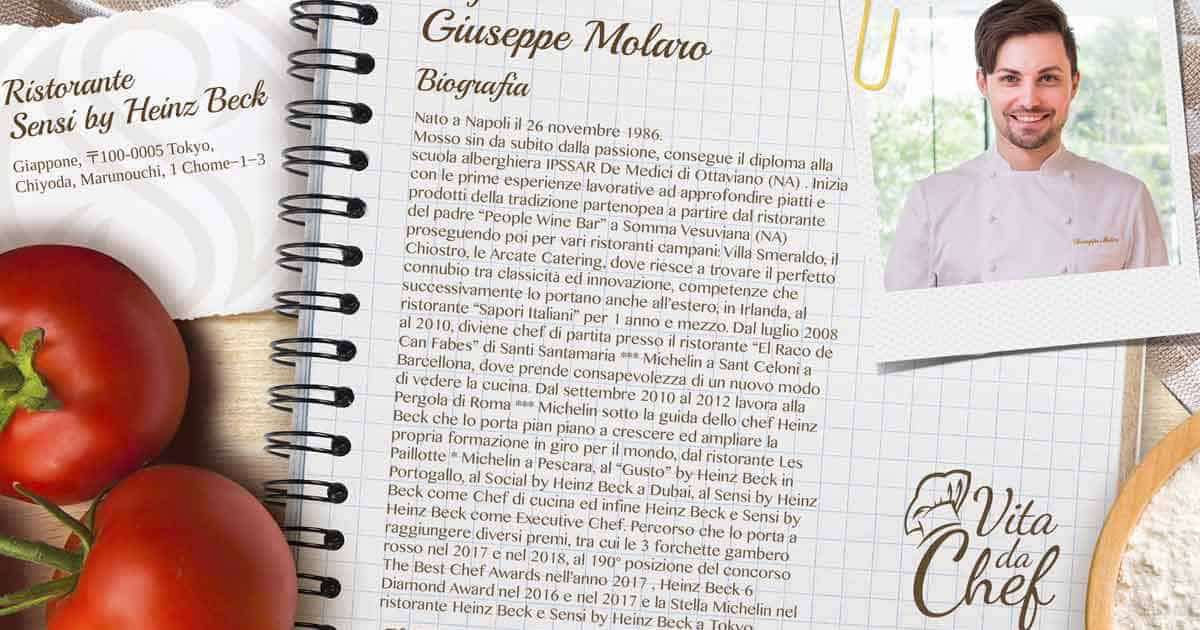 Ristorante
Sensi by Heinz Beck
Giappone, 〒100-0005 Tokyo,
Chiyoda, Marunouchi, 1 Chome−1−3
Giuseppe Molaro
Biografia
Nato a Napoli il 26 novembre 1986.
Mosso sin da subito dalla passione, consegue il diploma alla
scuola alberghiera IPSSAR De Medici di Ottaviano (NA) . Inizia
con le prime esperienze lavorative ad approfondire piatti e
prodotti della tradizione partenopea a partire dal ristorante
del padre “People Wine Bar” a Somma Vesuviana (NA)
proseguendo poi per vari ristoranti campani: Villa Smeraldo, il
Chiostro, le Arcate Catering, dove riesce a trovare il perfetto
connubio tra classicità ed innovazione, competenze che
successivamente lo portano anche all’estero, in Irlanda, al
ristorante “Sapori Italiani” per 1 anno e mezzo. Dal luglio 2008
al 2010, diviene chef di partita presso il ristorante “El Raco de
Can Fabes” di Santi Santamaria *** Michelin a Sant Celoni a
Barcellona, dove prende consapevolezza di un nuovo modo
di vedere la cucina. Dal settembre 2010 al 2012 lavora alla
Pergola di Roma *** Michelin sotto la guida dello chef Heinz
Beck che lo porta pian piano a crescere ed ampliare la
propria formazione in giro per il mondo, dal ristorante Les
Paillotte * Michelin a Pescara, al “Gusto” by Heinz Beck in
Portogallo, al Social by Heinz Beck a Dubai, al Sensi by Heinz
Beck come Chef di cucina ed infine Heinz Beck e Sensi by
Heinz Beck come Executive Chef. Percorso che lo porta a
raggiungere diversi premi, tra cui le 3 forchette gambero
rosso nel 2017 e nel 2018, al 190° posizione del concorso
The Best Chef Awards nell’anno 2017 , Heinz Beck 6
Diamond Award nel 2016 e nel 2017 e la Stella Michelin nel
ristorante Heinz Beck e Sensi by Heinz Beck a Tokyo
Giuseppe Molaro
Vita
da
Chef